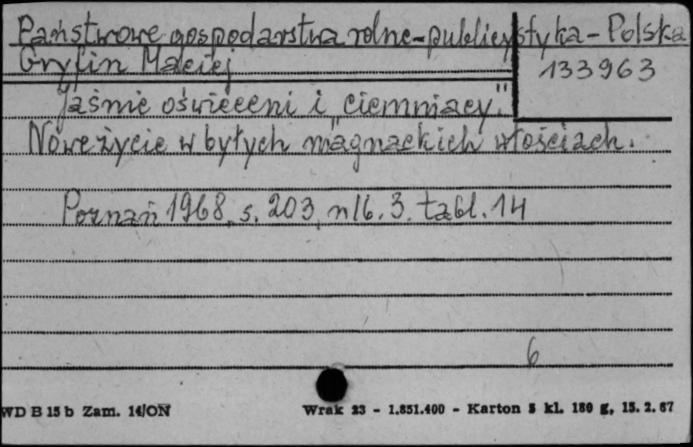 Państwowe gospodarstwa rolne - publicystyka - Polska
Gryfin Maciej
133963
Jaśnie oświeceni i „ciemniacy".
Nowe życie w byłych magnackich włościach.
Poznań 1968, s. 203, nlb. 3, tabl. 14
6
WD B 15 b Zam. 14/ON Wrak 23 - 1.851.400 - Karton 5 kl. 180 g, 15. 2. 67